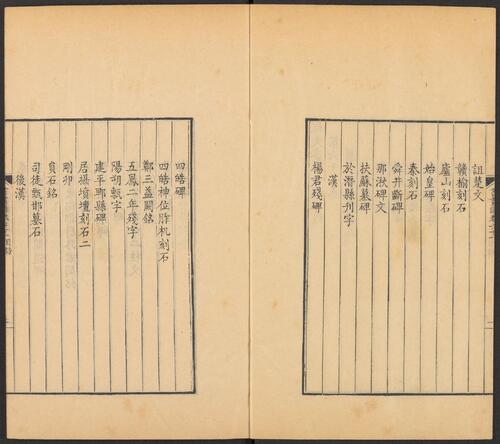 詛楚文
贛榆刻石
廬山刻石
始皇碑
泰刻石
舜井斷碑
那湫碑文
扶蘇墓碑
於潛縣刋字
漢
楊君殘碑
四皓碑
四皓神位胙机刻石
鄭三益闕銘
五鳳二年殘字
陽朔甎字
建平郫縣碑
居攝墳壇刻石二
剛卯
負石銘
司徒
邯墓石
後漢